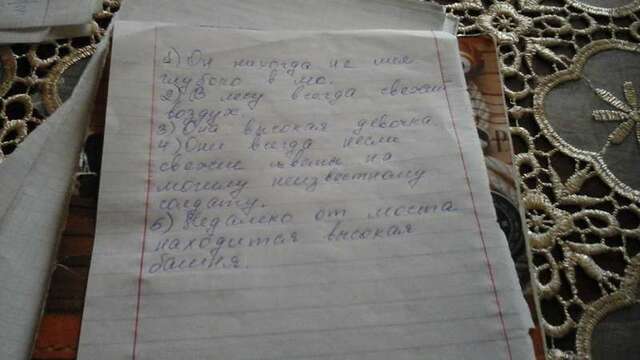 1) Он никогда не
глубоко в
2) В лесу всегда свежий
воздух.
3) Она высокая девочка.
4) Они всегда несли
свежие на
могилу неизвестному
солдату.
5) Недалеко от моста
находится высокая
башня.